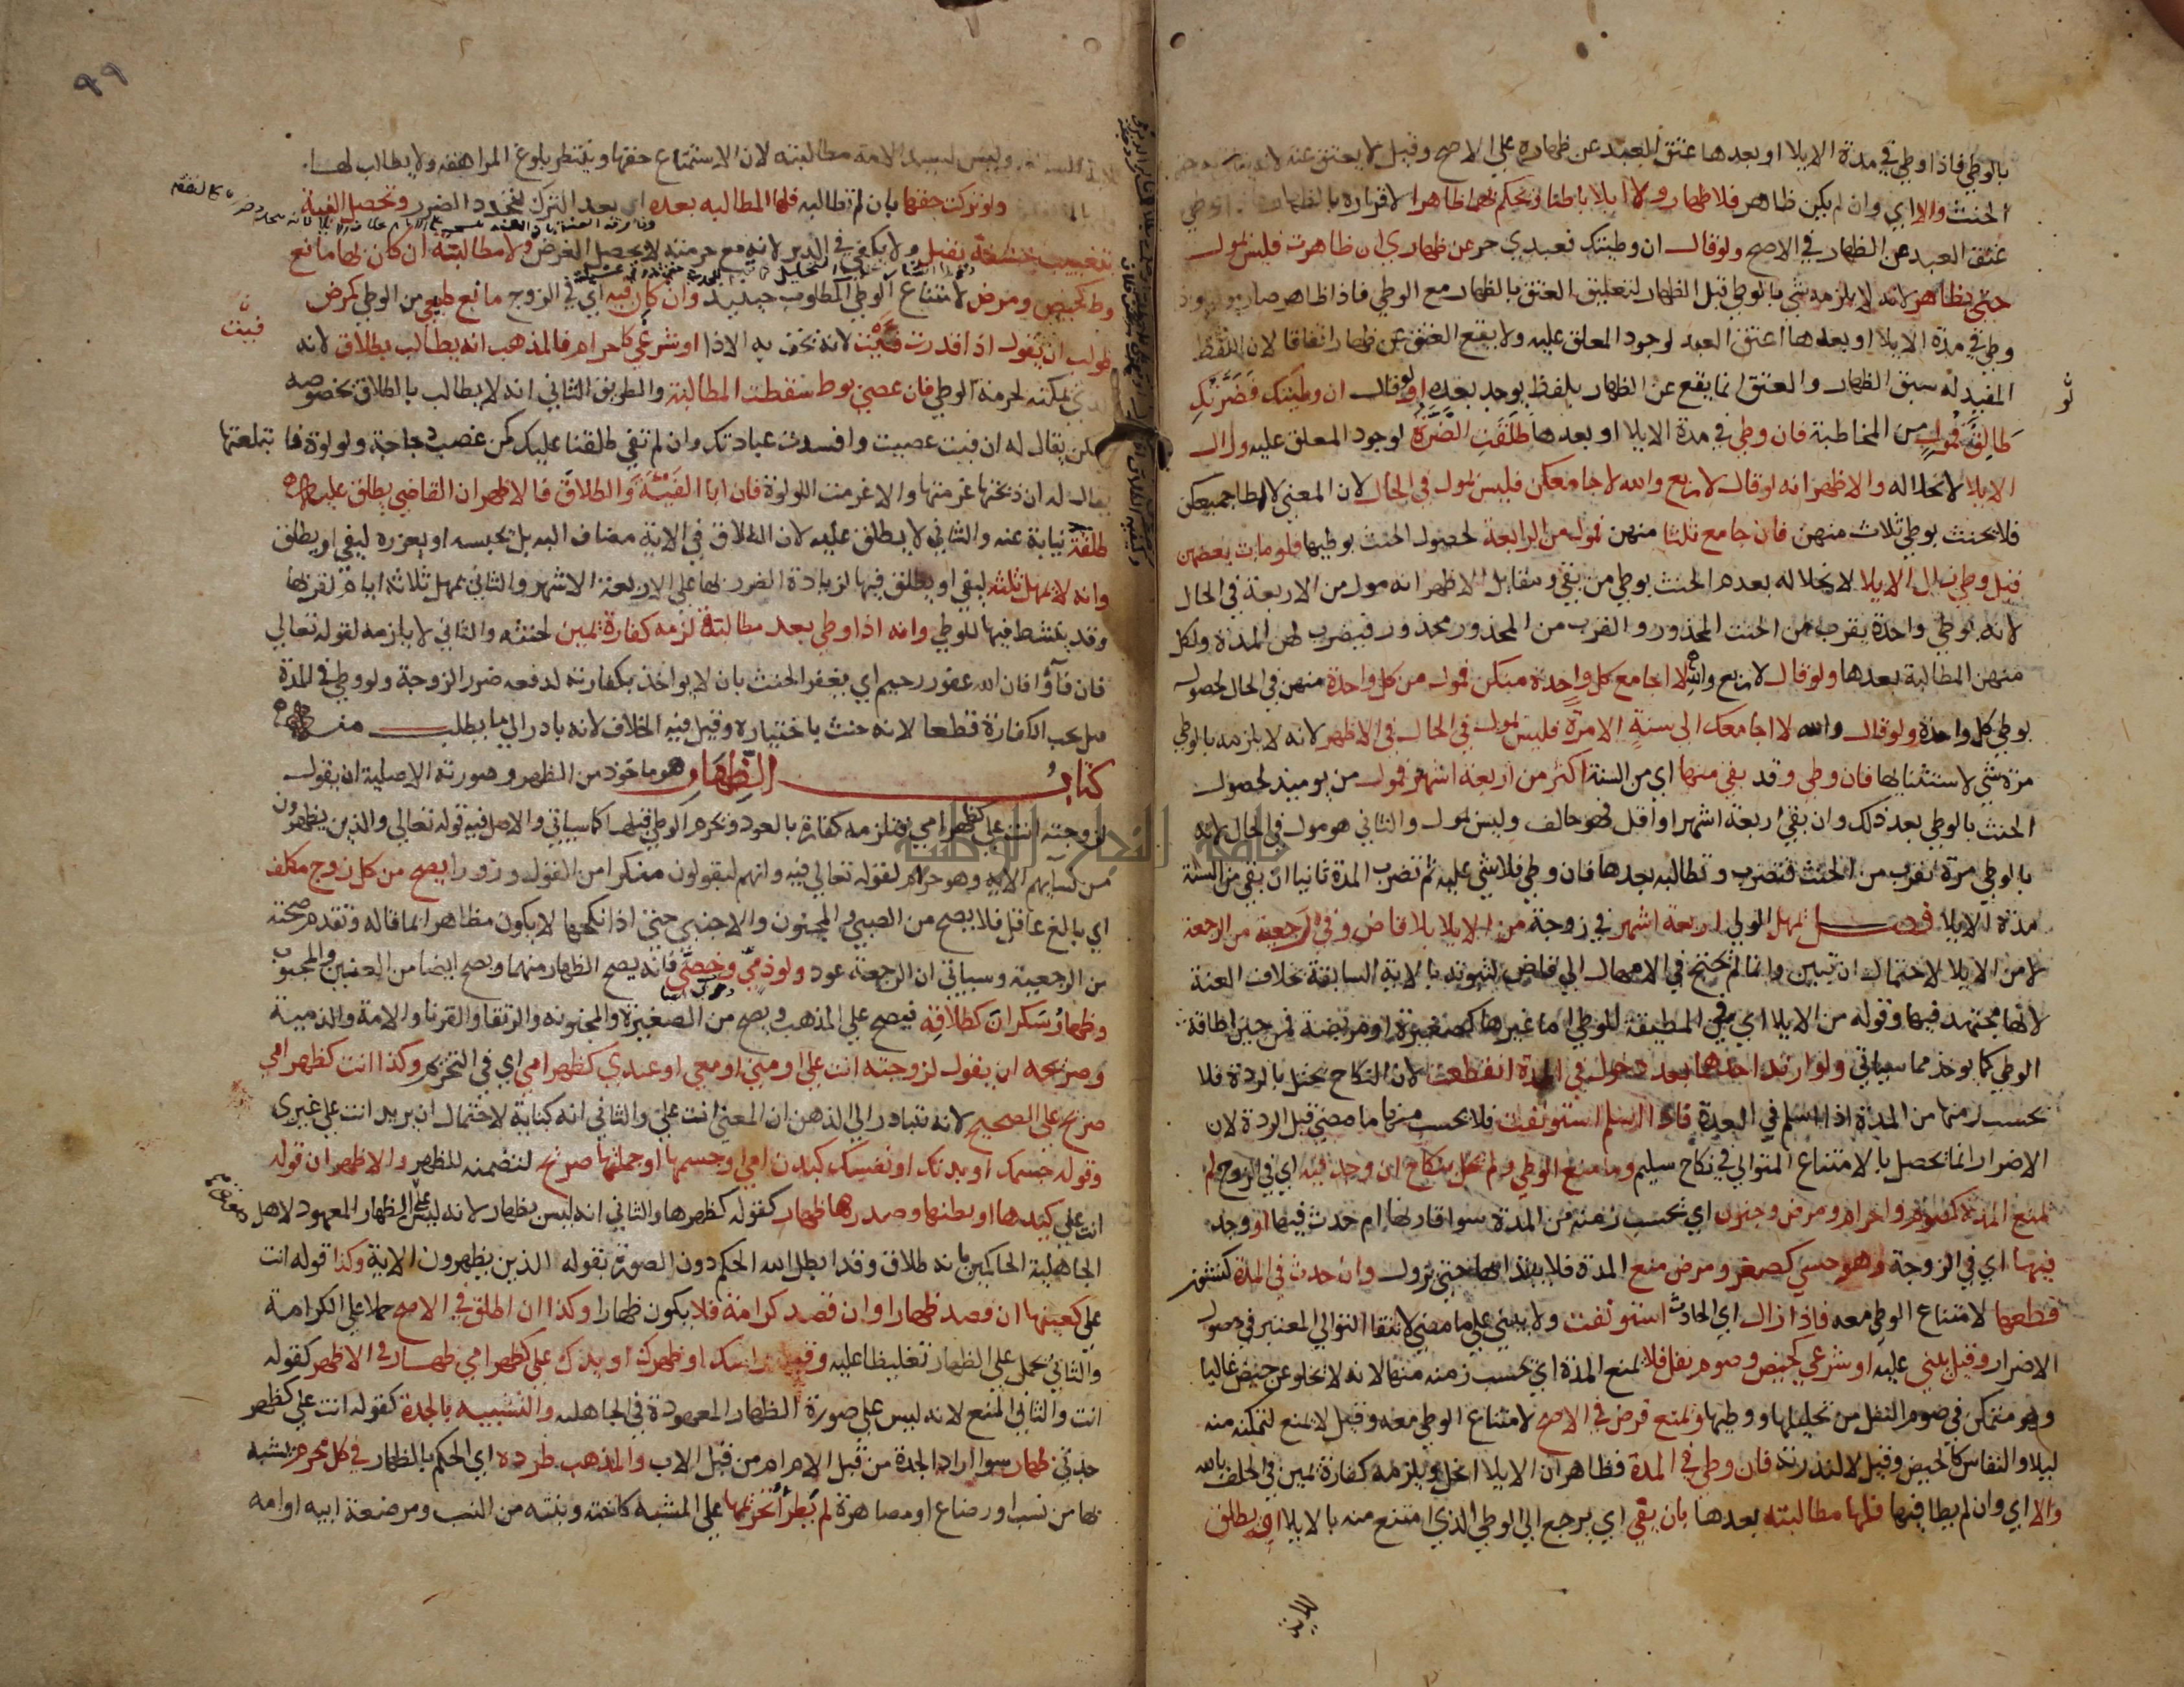 بالوطي فاذا وطي في مدة الايلا او بعدها عتق العبد عن ظهاره علي الاصح وقيل لا يعتق عنه لانه
الحنث والا اي وان لم يكن ظاهر فلا ظهار ولا ايلا باطنا ونحكم بهما ظاهرا لاقراره بالظهار
عتق العبد عن الظهار في الاصح ولو قال ان وطيتك فعبدي حر عن ظهاري ان ظاهرت فليس بمول
حتي يظاهر لانه لا يلزمه شي بالوطي قبل الظهار لتعليق العتق بالظهار مع الوطي فاذا ظاهر صار موليا
وطي في مدة الايلا او بعدها عتق العبد لوجود المعلق عليه ولا يقع العتق عن ظهار اتفاقا لان اللفظ
المفيد له سبق الظهار والعتق انما يقع عن الظهار بلفظ يوجد بعده او قال ان وطيتك فضرتك
لو
طالق فمول من المخاطبة فان وطي في مدة الايلا او بعدها طلقت الضرة لوجود المعلق عليه وزال
الايلا لانحلاله والاظهر انه لو قال لاربع والله لا اجامعكن فليس بمول في الحال لان المعني لا اطا جميعكن
فلا يحنث بوطي ثلاث منهن فان جامع ثلثا منهن فمول من الرابعة لحصول الحنث بوطيها فلو مات بعضهن
قبل وطي زال الايلا لانحلاله بعدم الحنث بوطي من بقي ومقابل الاظهر انه مول من الاربعة في الحال
لانه بوطي واحدة يقرب من الحنث المحذور والقرب من المحذور محذور فيضرب لهن المدة ولكل
منهن المطالبة بعدها ولو قال لاربع والله لا اجامع كل واحدة منكن فمول من كل واحدة منهن في الحال لحصول
بوطي كل واحدة ولو قال والله لا اجامعك الي سنة الا مرة فليس بمول في الحال في الاظهر لانه لا يلزمه بالوطي
مرة شي لاستثنائها فان وطي وقد بقي منها اي من السنة اكثر من اربعة اشهر فمول من يوميذ لحصول
الحنث بالوطي بعد ذلك وان بقي اربعة اشهر او اقل فهو حالف وليس بمول والثاني هو مول في الحال لانه
بالوطي مرة تقرب من الحنث فتضرب وتطالبه بعدها فان وطي فلا شي عليه ثم تضرب المدة ثانيا ان بقي من السنة
مدة الايلا فصل يمهل المولي اربعة اشهر في زوجة من الايلا بلا قاض وفي رجعية من الرجعة
لا من الايلا لاحتمال ان تبين وانما لم يحتج في الامهال الي قاض لثبوته بالاية السابقة بخلاف العنة
لانها مجتهد فيها وقوله من الايلا اي في المطيقة للوطي اما غيرها كصغيرة او مريضة فمن حين اطاقة
الوطي كما يوخذ مما سياتي ولو ارتد احدهما بعد دخول في المدة انقطعت لان النكاح يختل بالردة فلا
يحسب زمنها من المدة اذا اسلم في العدة فاذا اسلم استونفت فلا يحسب منها ما مضي قبل الردة لان
الاضرار انما يحصل بالامتناع المتوالي في نكاح سليم وما منع الوطي ولم يخل بنكاح ان وجد فيه اي في الزوج لم
يمنع المدة كصوم واحرام ومرض وجنون اي تحسب زمنه من المدة سوا قارنها ام حدث فيها او وجد
فيها اي في الزوجة وهو حسي كصغر ومرض منع المدة فلا يبتدا بها حتي يزول وان حدث في المدة كنشوز
قطعها لامتناع الوطي معه فاذا زال اي الحادث استونفت ولا يبني علي ما مضي لانتفا التوالي المعتبر في حصول
الاضرار وقيل يبني عليه او شرعي كحيض وصوم نفل فلا يمنع المدة اي يحسب زمنه منها لانه لا تخلو عن حيض غالبا
وهو متمكن في صوم النفل من تحليلها ووطيها ويمنع فرض في الاصح لامتناع الوطي معه وقيل لا يمنع لتمكنه منه
ليلا والنفاس كالحيض وقيل لا لندرته فان وطي في المدة فظاهر ان الايلا انحل ويلزمه كفارة يمين في الحلف بالله
والا اي وان لم يطا فيها فلها مطالبته بعدها بان يفي اي يرجع الي الوطي الذي امتنع منه بالايلا او يطلق
للاية
٩٩
للاية السابقة وليس لسيد الامة مطالبته لان الاستمتاع حقها وينتظر بلوغ المراهقة ولا يطالب لها
ولو تركت حقها بان لم تطالبه فلها المطالبه بعده اي بعد الترك لتجدد الضرر وتحصل الفية
بتغييب حشفة بقبل ولا يكفي في الدبر لانه مع حرمته لا يحصل الغرض ولا مطالبته ان كان بها مانع
وطي كحيض ومرض لامتناع الوطي المطلوب حينيذ وان كان فيه اي في الزوج مانع طبيعي من الوطي كمرض
طولب ان يقول اذا قدرت فيت لانه تخف به الاذا او شرعي كاحرام فالمذهب انه يطالب بطلاق لانه
فيت
الذي يمكنه لحرمة الوطي فان عصي بوط سقطت المطالبة والطريق الثاني انه لا يطالب بالطلاق بخصوصه
لكن يقال له ان فيت عصيت وافسدت عبادتك وان لم تفي طلقنا عليك كمن غصب دجاجة ولولوة فابتلعتها
يقال له ان ذبحتها غرمتها والا غرمت اللولوة فان ابا الفيئة والطلاق فالاظهر ان القاضي يطلق عليه
طلقة نيابة عنه والثاني لا يطلق عليه لان الطلاق في الاية مضاف اليه بل يحبسه او يعزره ليفي او يطلق
وانه لا يمهل ثلثه ليفي او يطلق فيها لزيادة الضرر بها علي الاربعة الاشهر والثاني يمهل ثلاثة ايام لقربها
وقد ينشط فيها للوطي وانه اذا وطي بعد مطالبة لزمه كفارة يمين لحنثه والثاني لا يلزمه لقوله تعالي
فان فآوا فان الله غفور رحيم اي يغفر الحنث بان لا يواخذ بكفارته لدفعه ضرر الزوجة ولو وطي في المدة
قبل يجب الكفارة قطعا لانه حنث باختياره وقيل فيه الخلاف لانه بادر الي ما يطلب منه
كتاب الظهار هو ماخوذ من الظهر وصورته الاصلية ان يقول
لزوجته انت علي كظهر امي فتلزمه كفارة بالعود ونحرم الوطي قبلها كما سياتي والاصل فيه قوله تعالي والذين يظهرون
من نسايهم الاية وهو حرام لقوله تعالي فيه وانهم ليقولون منكرا من القول وزورا يصح من كل زوج مكلف
اي بالغ عاقل فلا يصح من الصبي والمجنون والاجنبي حتي اذا نكحها لا يكون مظاهرا بما قاله وتقدم صحته
من الرجعية وسياتي ان الرجعة عود ولو ذمي وخصي فانه يصح الظهار منهما ويصح ايضا من العنين والمجبوب
وظهار سكران كطلاقه فيصح علي المذهب ويصح من الصغيرة والمجنونه والرتقا والقرنا والامة والذمية
وصريحه ان يقول لزوجته انت علي او مني او معي او عندي كظهر امي اي في التحريم وكذا انت كظهر امي
صريح علي الصحيح لانه يتبادر الي الذهن ان المعني انت علي والثاني انه كناية لاحتمال ان يريد انت علي غيري
وقوله جسمك او بدنك او نفسك كبدن امي وجسمها او جملتها صريح لتضمنه للظهر والاظهر ان قوله
انت علي كيدها او بطنها وصدرها ظهار كقوله كظهرها والثاني انه ليس بظهار لانه ليس علي الظهار المعهود لاهل
الجاهلية الحاكمين بانه طلاق وقد ابطل الله الحكم دون الصورة بقوله الذين يظهرون الاية وكذا قوله انت
علي كعينها ان قصد ظهارا وان قصد كرامة فلا يكون ظهارا وكذا ان اطلق في الاصح حملا علي الكرامة
والثاني يحمل علي الظهار تغليظا عليه وقوله راسك او ظهرك او يدك علي كظهر امي ظهار في الاظهر كقوله
انت والثاني المنع لانه ليس علي صورة الظهار المعهودة في الجاهليه والتشبيه بالجدة كقوله انت علي كظهر
جدتي ظهار سوا اراد الجدة من قبل الام ام من قبل الاب والمذهب طرده اي الحكم بالظهار في كل محرم يشبه
بها من نسب او رضاع او مصاهرة لم يطرا تحريمها علي المشبه كاخته وبنته من النسب ومرضعة ابيه او امه
جامعة النجاح الوطنية